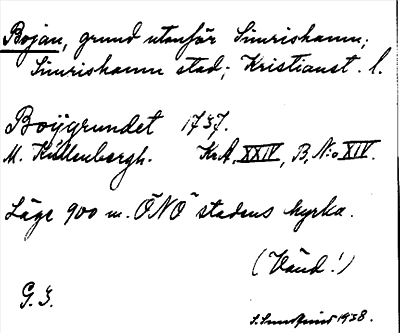 Bojan, grund utanför Simrishamn;
Simrishamn stad; Kristianst. l.
Boijgrundet 1737.
M. Küllenbergh. KrA, XXIV, B, N:o XIV.
Läge 900 m. ÖNÖ stadens kyrka.
(Vänd!)
G. I.
1938.